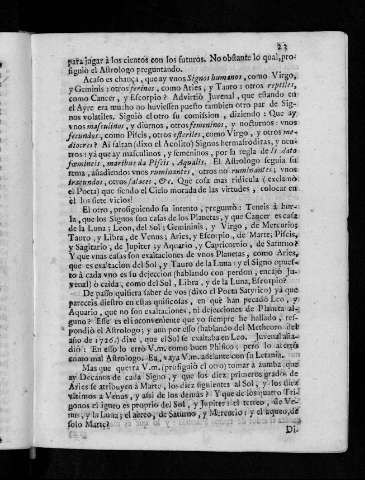 23
para jugar à los cientos con los futuros. No obstante lo qual, pro-
siguiò el Astrologo preguntando.
Acaso es chança, que ay vnos Signos humanos, como Virgo,
y Geminis: otros ferinos, como Aries, y Tauro: otros reptiles,
como Cancer, y Escorpio? Advirtiò Juvenal, que estando en
el Ayre era mucho no huviessen puesto tambien otro par de Sig-
nos volatiles. Siguiò el otro su comission, diziendo: Que ay
vnos masculinos, y diurnos, otros femeninos, y nocturnos: vnos
fecundos, como Piscis, otros esteriles, como Virgo, y otros me-
diocres? Ai faltan (dixo el Acolito) Signos hermafroditas, y neu-
tros: yà que ay masculinos, y femeninos, por la regla de is dato
fæmineis, maribus da Piscis, Aqualis. El Astrologo seguia su
tema, añadiendo: vnos rumiantes, otros no ruminantes; vnos
iracundos, otros falaces, &c. Que cosa mas ridicula (exclamò
el Poeta) que siendo el Cielo morada de las virtudes, colocar en
èl los siete vicios!
El otro, prosiguiendo su intento, preguntò: Teneis à bur-
la, que los Signos son casas de los Planetas, y que Cancer es casa
de la Luna; Leon, del Sol; Geminis, y Virgo, de Mercurio;
Tauro, y Libra, de Venus; Aries, y Escorpio, de Marte; Piscis,
y Sagitario, de Jupiter; y Aquario, y Capricornio, de Saturno?
Y que vnas casas son exaltaciones de vnos Planetas, como Aries,
que es exaltacion del Sol, y Tauro de la Luna; y el Signo opues-
to à cada vno es su dejeccion (hablando con perdon, encajò Ju-
venal) ò caida, como del Sol, Libra, y de la Luna, Escorpio?
De passo quisiera saber de vos (dixo el Poeta Satyrico) yà que
pareceis diestro en estas quisicosas, en què han pecado Leo, y
Aquario, que no son exaltaciones, ni dejecciones de Planeta al-
guno? Esse es el inconveniente que yo siempre he hallado, res-
pondiò el Astrologo; y aun por esso (hablando del Methecoro del
año de 1726.) dixe, que el Sol se exaltaba en Leo. Juvenal aña-
diò: En esso errò V.m. como buen Phisico; pero lo acertò
como mal Astrologo. Ea, vaya V.m. adelante con su Letania.
Mas que querrà V.m. (prosiguiò el otro) tomar à zumba que
ay Decanos de cada Signo, y que los diez primeros grados de
Aries se atribuyen à Marte, los diez siguientes al Sol, y los diez
vltimos à Venus, y assi de los demàs? Y que de los quatro Tri-
gonos el igneo es proprio del Sol, y Jupiter: el terreo, de Ve-
nus, y la Luna; el aereo, de Saturno, y Mercurio: y el aqueo, de
solo Marte?
Di-